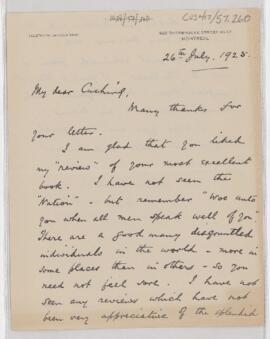 CUS417/57.260
MONTREAL
26th July. 1925.
My dear Cushing,
Many thanks for
your letter.
I am glad that you liked
my "review" of your most excellent
book. I have not seen the
"Nation" - but remember "Woe unto
you when all men speak well of you"
There are a good many disgruntled
individuals in the world - more in
some places than in others - so you
need not feel sore. I have not
seen any reviews which have not
been very appreciative of the splendid